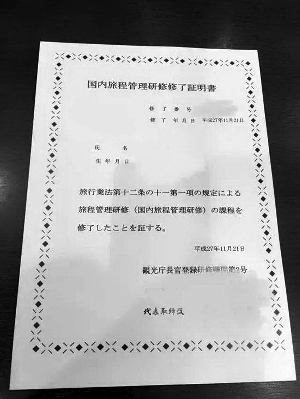 国内旅程管理研修修了証明書
修了番号
修了年月日 平成27年11月21日
氏名
生年月日
旅行業法第十二条の十一第一項の規定による
旅程管理研修（国内旅程管理研修）の課程を
修了したことを証する。
平成27年11月21日
観光庁長官登録研修機関第2号
代表取締役